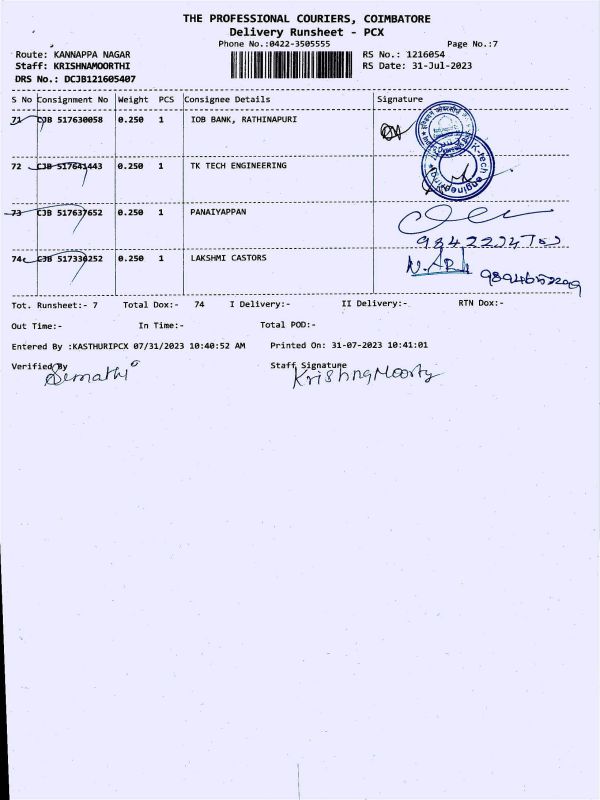 THE PROFESSIONAL COURIERS, COIMBATORE
Delivery Runsheet - PCX
Phone No.:0422-3505555 Page No.:7
Route: KANNAPPA NAGAR RS No.: 1216054
Staff: KRISHNAMOORTHI RS Date: 31-Jul-2023
DRS No.: DCJB121605407
S No Consignment No Weight PCS Consignee Details Signature
71 CJB 517630058 0.250 1 IOB BANK, RATHINAPURI
72 CJB 517641443 0.250 1 TK TECH ENGINEERING
73 CJB 517637652 0.250 1 PANAIYAPPAN
74 CJB 517336252 0.250 1 LAKSHMI CASTORS
Tot. Runsheet:- 7 Total Dox:- 74 I Delivery:- II Delivery:- RTN Dox:-
Out Time:- In Time:- Total POD:-
Entered By :KASTHURIPCX 07/31/2023 10:40:52 AM Printed On: 31-07-2023 10:41:01
Verified By Staff Signature
KrishnaMoorty